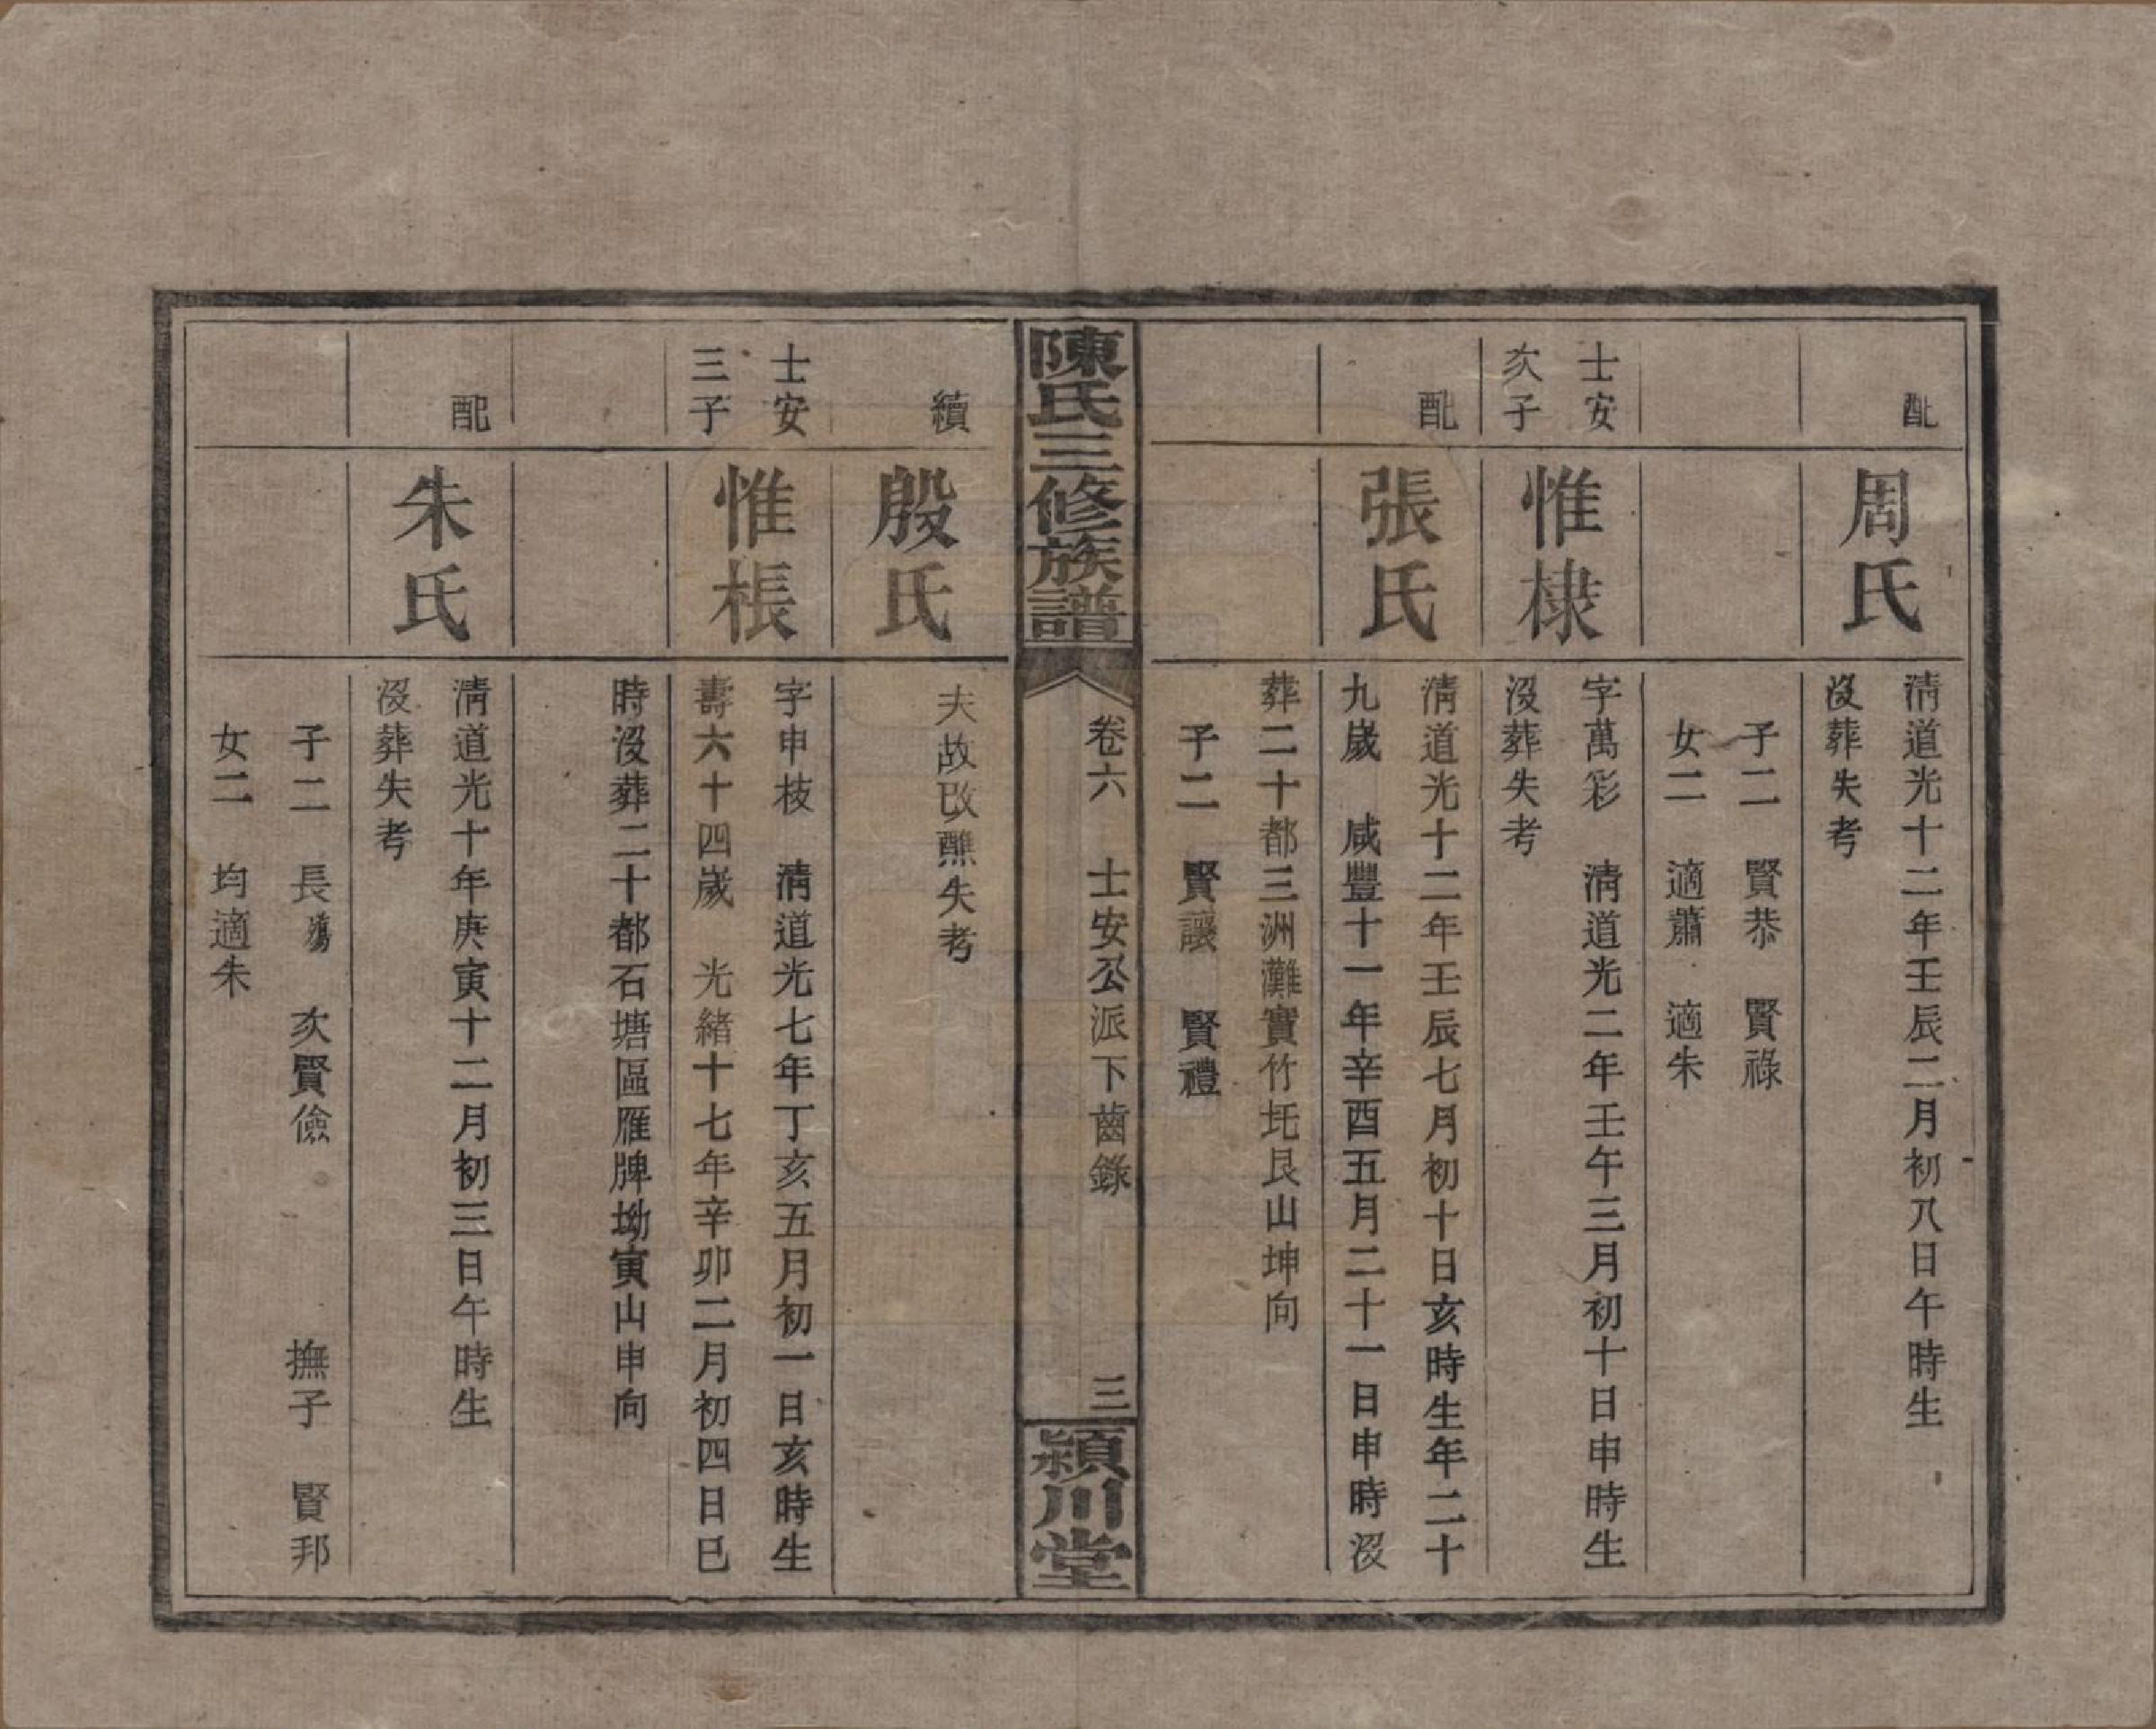 配
周氏
清道光十二年壬辰二月初八日午時生
沒葬失考
子二 賢恭 賢祿
女二 適蕭 適朱
士安
次子
惟棣
字萬彩 清道光二年壬午三月初十日申時生
沒葬失考
配
張氏
清道光十二年壬辰七月初十日亥時生年二十
九歲 咸豐十一年辛酉五月二十一日申時沒
葬二十都三洲灘實竹圫艮山坤向
子二 賢讓 賢禮
陳氏三修族譜
卷六 士安公派下齒錄
三
潁川堂
續
殷氏
夫故改醮失考
士安
三子
惟棖
字申枝 清道光七年丁亥五月初一日亥時生
壽六十四歲 光緒十七年辛卯二月初四日巳
時沒葬二十都石塘區雁牌坳寅山申向
配
朱氏
清道光十年庚寅十二月初三日午時生
沒葬失考
子二 長殤 次賢儉 撫子 賢邦
女二 均適朱